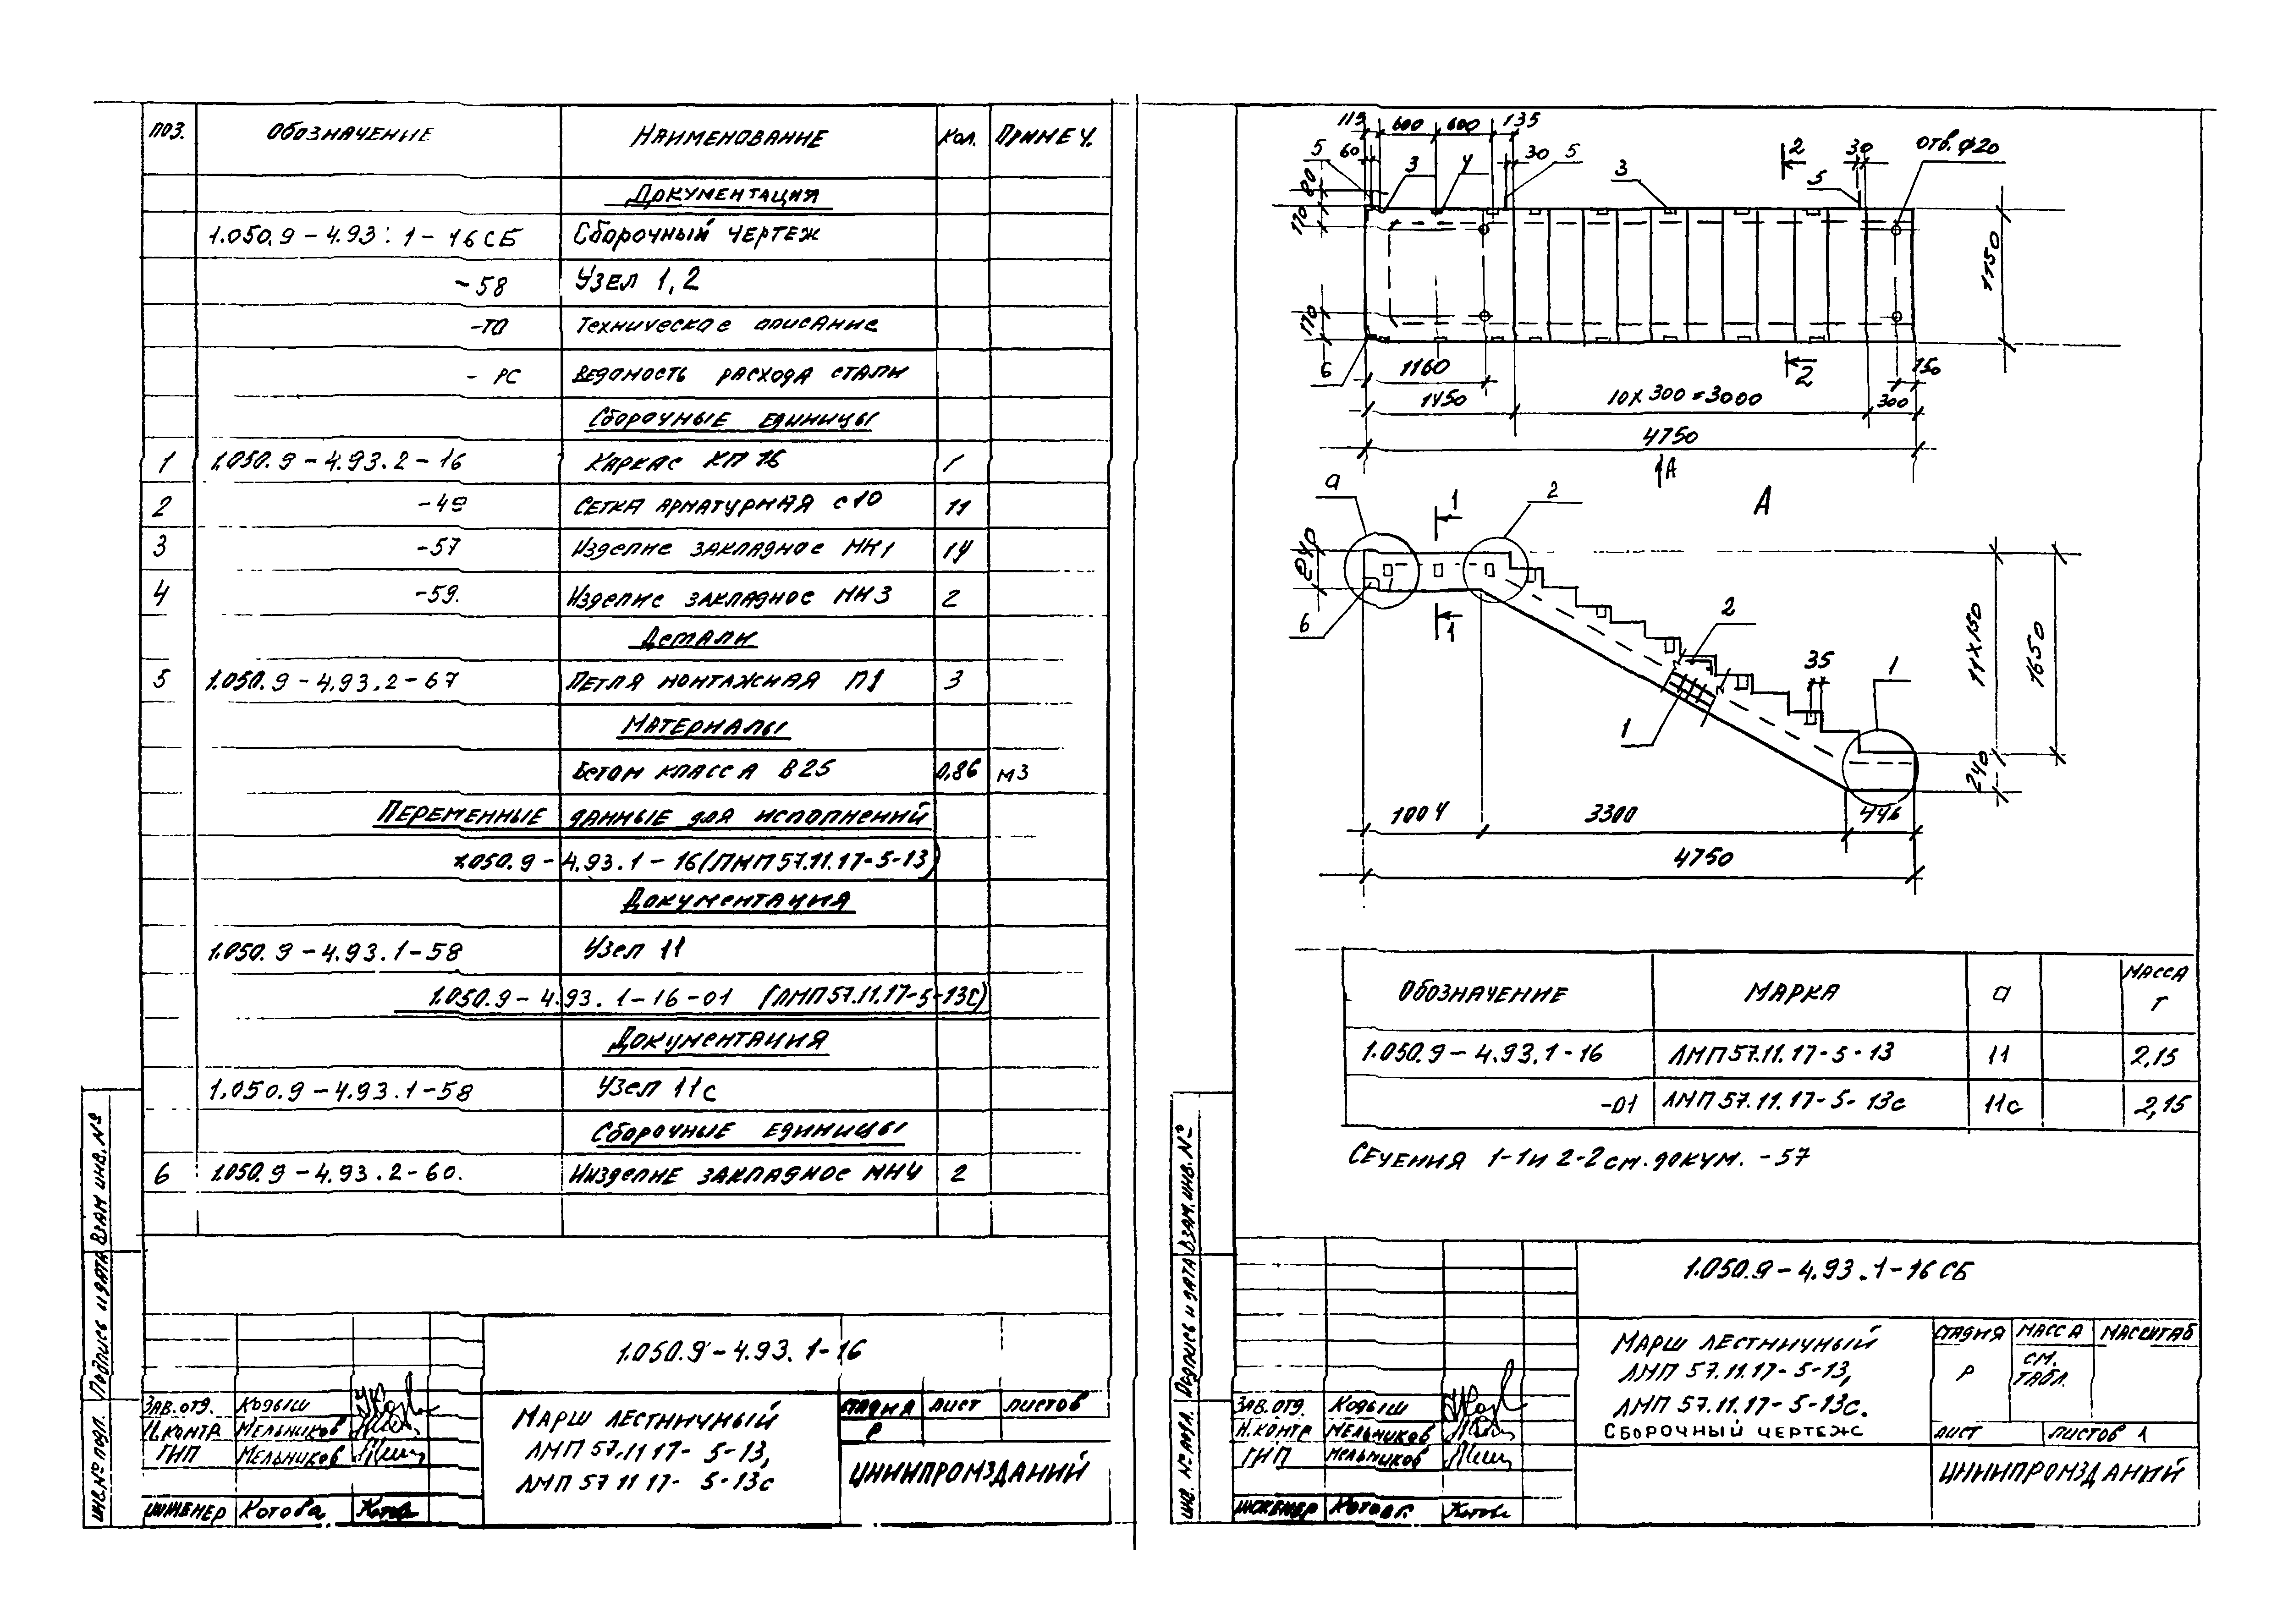 ПОЗ. ОБОЗНАЧЕНИЕ НАИМЕНОВАНИЕ КОЛ. ПРИМЕЧ.
ДОКУМЕНТАЦИЯ
1.050.9-4.93.1-16СБ СБОРОЧНЫЙ ЧЕРТЕЖ
-58 УЗЕЛ 1,2
-ТО ТЕХНИЧЕСКОЕ ОПИСАНИЕ
-РС ВЕДОМОСТЬ РАСХОДА СТАЛИ
СБОРОЧНЫЕ ЕДИНИЦЫ
1 1.050.9-4.93.2-16 КАРКАС КП16 1
2 -49 СЕТКА АРМАТУРНАЯ С10 11
3 -57 ИЗДЕЛИЕ ЗАКЛАДНОЕ МН1 14
4 -59. ИЗДЕЛИЕ ЗАКЛАДНОЕ МН3 2
ДЕТАЛИ
5 1.050.9-4.93.2-67 ПЕТЛЯ МОНТАЖНАЯ П1 3
МАТЕРИАЛЫ
БЕТОН КЛАССА В25 0,86 м3
ПЕРЕМЕННЫЕ ДАННЫЕ ДЛЯ ИСПОЛНЕНИЙ
1.050.9-4.93.1-16(ЛМП57.11.17-5-13)
ДОКУМЕНТАЦИЯ
1.050.9-4.93.1-58 УЗЕЛ 11
1.050.9-4.93.1-16-01 (ЛМП57.11.17-5-13С)
ДОКУМЕНТАЦИЯ
1.050.9-4.93.1-58 УЗЕЛ 11с
СБОРОЧНЫЕ ЕДИНИЦЫ
6 1.050.9-4.93.2-60. ИИЗДЕЛИЕ ЗАКЛАДНОЕ МН4 2
ИНВ.№ ПОДЛ. ПОДПИСЬ И ДАТА ВЗАМ ИНВ.№
1.050.9-4.93.1-16
ЗАВ.ОТД. КОДЫШ
Н.КОНТР МЕЛЬНИКОВ
ГИП МЕЛЬНИКОВ
ИНЖЕНЕР КОТОВА
МАРШ ЛЕСТНИЧНЫЙ
ЛМП 57.11 17-5-13,
ЛМП 57 11 17-5-13с
СТАДИЯ ЛИСТ ЛИСТОВ
Р
ЦНИИПРОМЗДАНИЙ
115 600 600 135
5 60 3 4 30 5 3 2 30 5 ОТВ. ф20
80
170
170
1150
6 1160 2 150
1450 10Х300=3000 300
4750
А
А
а 1 2
240
6 1
2
35 1
1
11×150
1650
240
1004 3300 446
4750
ОБОЗНАЧЕНИЕ МАРКА а МАССА Т
1.050.9-4.93.1-16 ЛМП57.11.17-5-13 11 2,15
-01 ЛМП57.11.17-5-13с 11с 2,15
СЕЧЕНИЯ 1-1и 2-2 см. докум. -57
ИНВ. № ПОДЛ. ПОДПИСЬ И ДАТА ВЗАМ.ИНВ.№
1.050.9-4.93.1-16СБ
ЗАВ.ОТД. КОДЫШ
Н.КОНТР МЕЛЬНИКОВ
ГИП МЕЛЬНИКОВ
ИНЖЕНЕР
МАРШ ЛЕСТНИЧНЫЙ
ЛМП 57.11.17-5-13,
ЛМП 57.11.17-5-13С.
СБОРОЧНЫЙ ЧЕРТЕЖ
СТАДИЯ МАССА МАСШТАБ
Р СМ. ТАБЛ.
ЛИСТ ЛИСТОВ 1
ЦНИИПРОМЗДАНИЙ